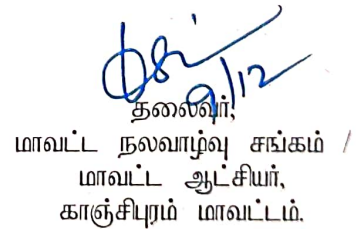 9/12
தலைவர்,
மாவட்ட நலவாழ்வு சங்கம் /
மாவட்ட ஆட்சியர்,
காஞ்சிபுரம் மாவட்டம்.